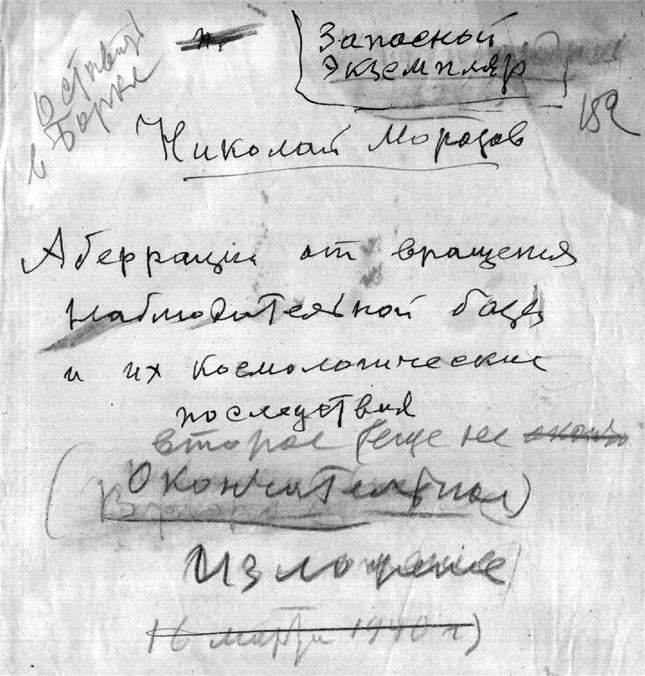 Оставить
в Борке
Запасной
экземпляр
152
Николай Морозов
Аберрации от вращения
наблюдательной базы
и их космологические
последствия
второе (еще не оконч
(Окончательное)
Изложение
16 марта 1940 г)